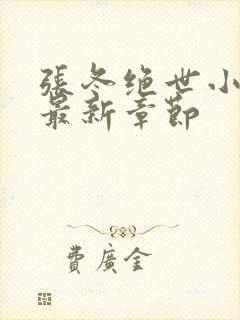 張冬绝世小
最新章節
費廣金